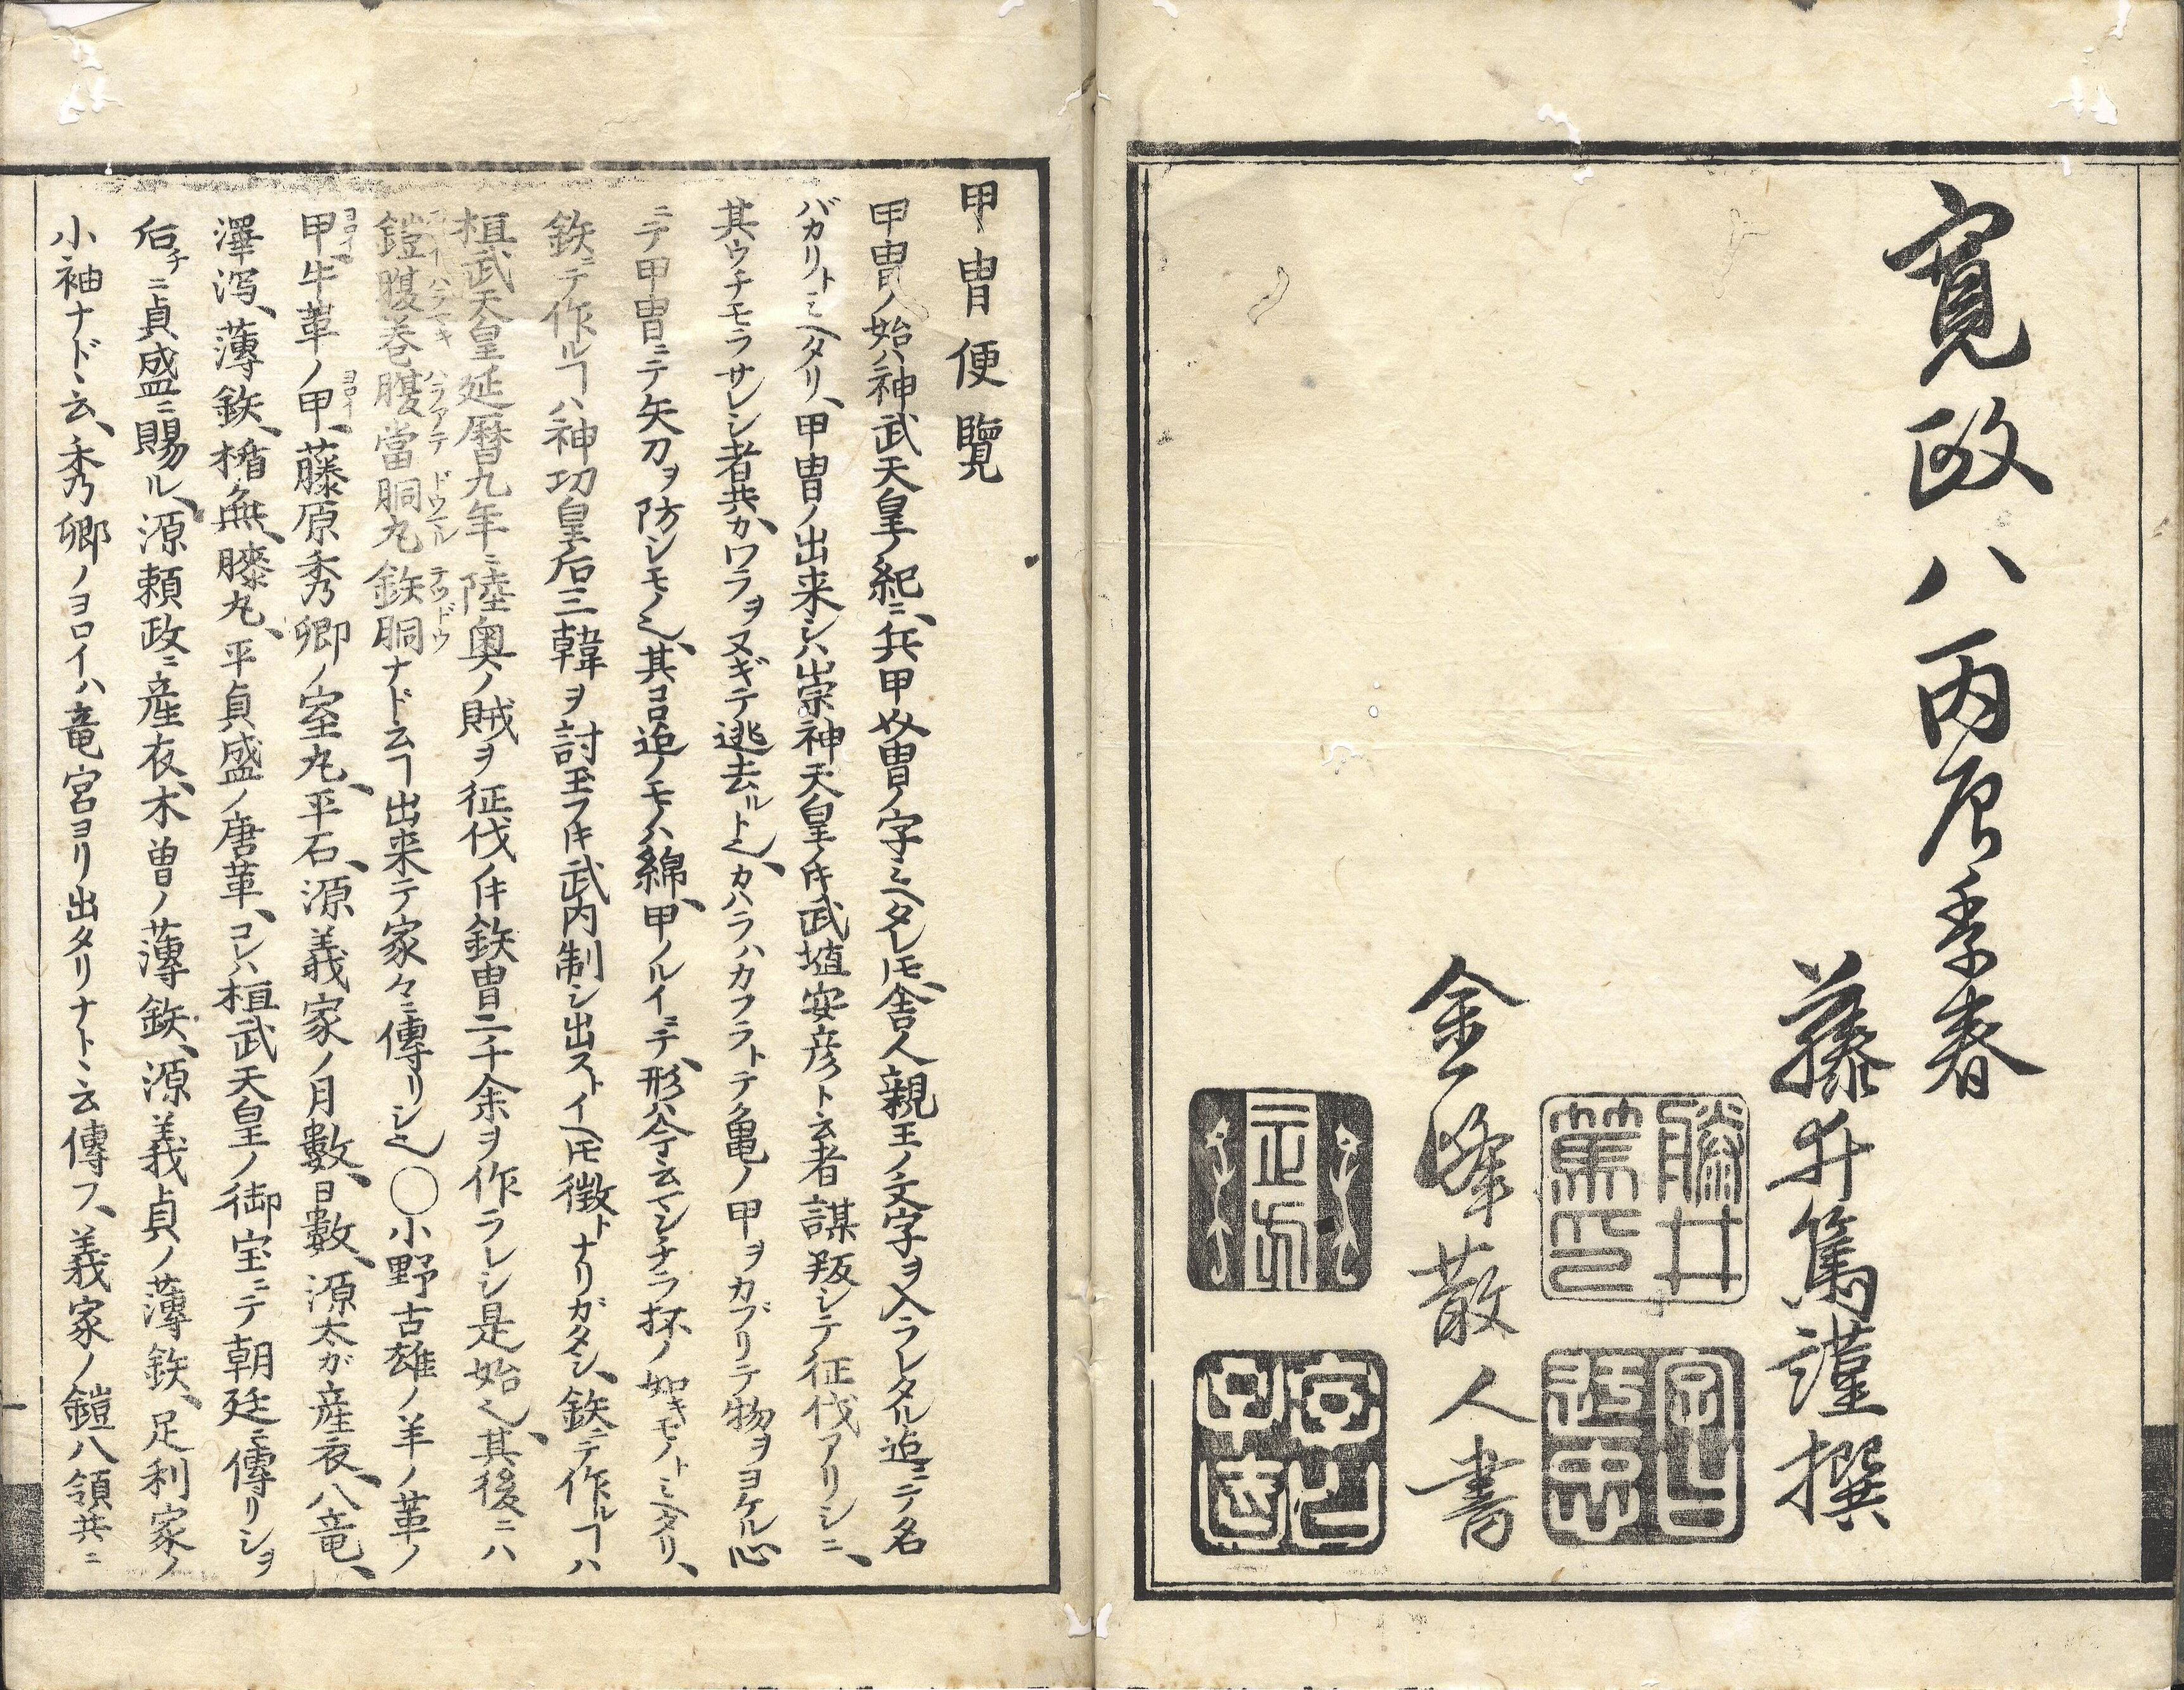 寛政八丙辰季春
藤井篤謹撰
藤井篤印
金峰散人書
甲冑便覧
甲冑ノ始ハ神武天皇ノ紀ニ、兵甲又冑ノ字ミヘタレ𪜈、舎人親王ノ文字ヲ入ラレタル迠ニテ名
バカリトミヘタリ、甲冑ノ出来シハ崇神天皇ノ𪜈武埴安彦ト云者謀叛シテ征伐アリシニ、
其ウチモラサレシ者共カワラヲヌギテ逃去ルト也、カハラハカフラトテ亀ノ甲ヲカブリテ物ヲヨケル心
ニテ甲冑ニテ矢刀ヲ防シモノ也、其コロ迠ノモノハ綿、甲ノルイニテ、形ハ今云マンチラ抔ノ如キモノトミヘタリ、
鉄ニテ作ルヿハ神功皇后三韓ヲ討玉フ𪜈武内制シ出ストイヘ𪜈徴トナリガタシ、鉄ニテ作ルヿハ
桓武天皇延暦九年ニ陸奥ノ賊ヲ征伐ノ𪜈鉄冑二千余ヲ作ラレシ是始也、其後ニハ
鎧腹巻腹當胴丸鉄胴ナド云ヿ出来テ家々ニ傳リシ也〇小野古雄ノ羊ノ革ノ
甲牛革ノ甲、藤原秀卿ノ室丸、平石、源義家ノ月數、日數、源太が産衣、八竜、
澤瀉、薄鉄、楯無、膝丸、平貞盛ノ唐革、コレハ桓武天皇ノ御宝ニテ朝廷ニ傳リシヲ
后チニ貞盛ニ賜ル、源頼政ニ産衣、木曽ノ薄鉄、源義貞ノ薄鉄、足利家ノ
小袖ナドヽ云、秀卿ノヨロイハ竜宮ヨリ出タリナトヽ云傳フ、義家ノ鎧八領共ニ